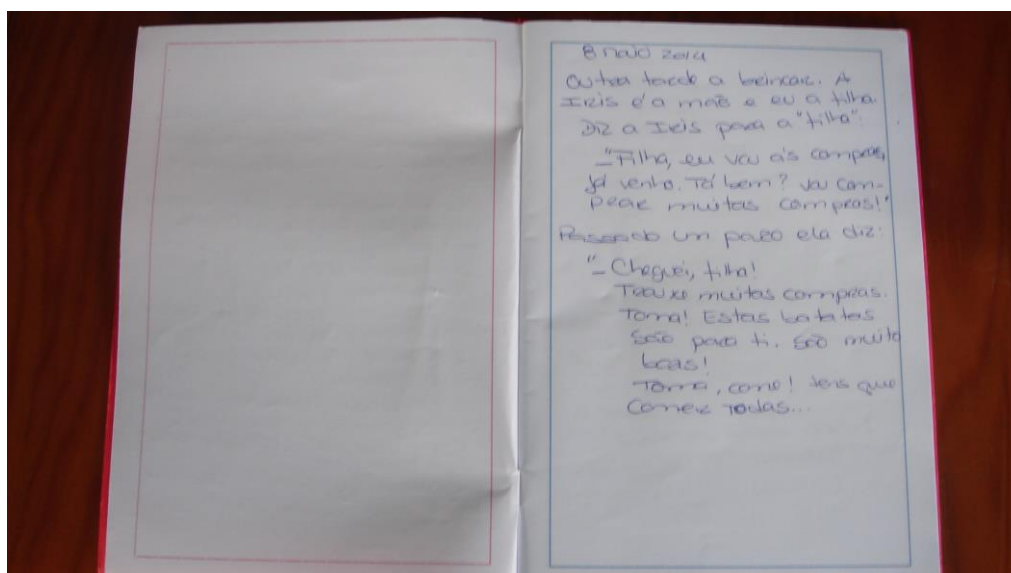 8 maio 2014
Outra tarde a brincar. A
Iris é a mãe e eu a filha.
Diz a Iris para a "filha":
"– Filha, eu vou às compras,
já venho. Tá bem? Vou com-
prar muitas compras!"
Passado um pouco ela diz:
"– Cheguei, filha!
Trouxe muitas compras.
Toma! Estas batatas
são para ti. São muito
boas!
Toma, come! tens que
comer todas...